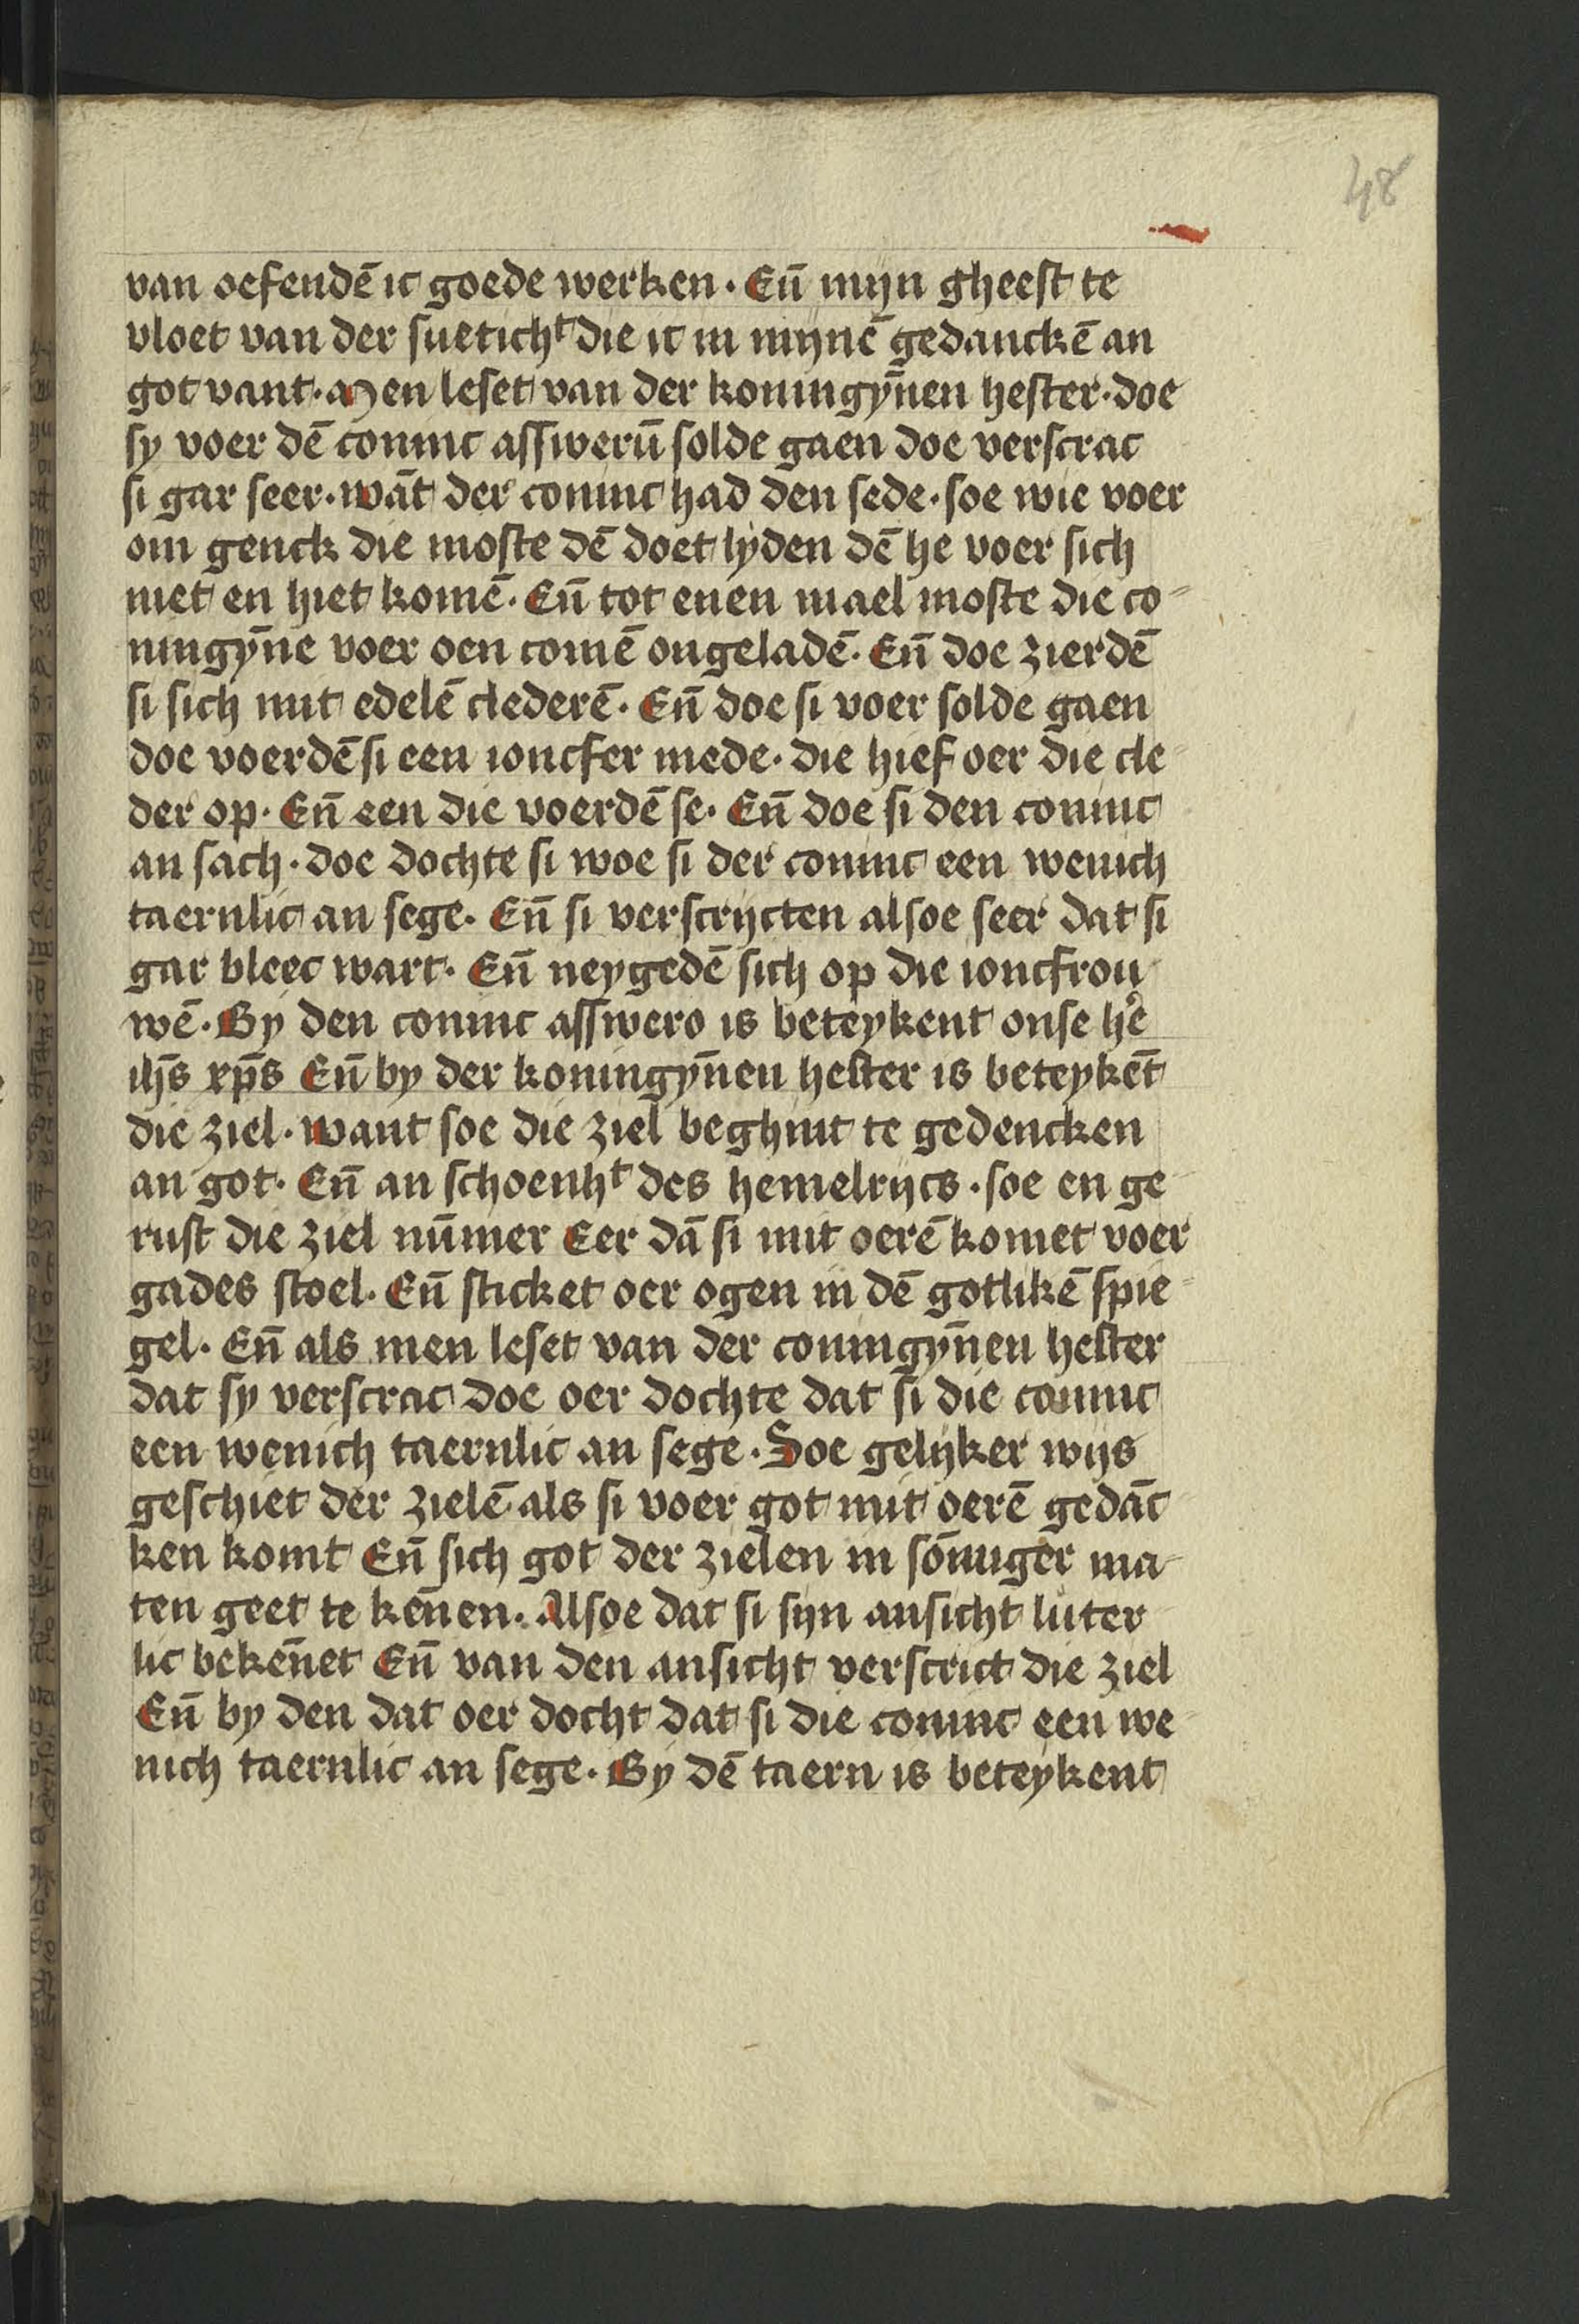 48
van oefendē ic goede werken. Eñ mijn gheest te
vloet van der suetich<sup>t</sup> die ic in mijnē gedanckē an
got vant. Men leset van der koningȳnen hester. doe
sy voer dē coninc asswerū solde gaen doe verscrac
si gar seer. wāt der coninc had den sede. soe wie voer
om genck die moste dē doet lyden dē he voer sich
niet en hiet komē. Eñ tot enen mael moste die co-
ningȳne voer oen comē ongeladē. Eñ doe zierdē
si sich mit edelē clederē. Eñ doe si voer solde gaen
doe voerdē si een ioncfer mede. die hief oer die cle-
der op. Eñ een die voerdē se. Eñ doe si den coninc
an sach. doe dochte si woe si der coninc een wenich
taernlic an sege. Eñ si verscrycten alsoe seer dat si
gar bleec wart. Eñ neygedē sich op die ioncfrou-
wē. By den coninc asswero is beteykent onse he͛
ih̄s xp̄s Eñ by der koningȳnen hester is beteykēt
die ziel. want soe die ziel beghint te gedencken
an got. Eñ an schoenh<sup>t</sup> des hemelrycs. soe en ge-
rust die ziel nūmer Eer dā si mit oerē komet voer
gades stoel. Eñ sticket oer ogen in dē gotlikē spie-
gel. Eñ als men leset van der coningȳnen hester
dat sy verscrac doe oer dochte dat si die coninc
een wenich taernlic an sege. Soe gelyker wijs
geschiet der zielē als si voer got mit oerē gedāc-
ken komt Eñ sich got der zielen in sōmiger ma-
ten geet te kēnen. Alsoe dat si sijn ansicht luter-
lic bekēnet Eñ van den ansicht verscrict die ziel
Eñ by den dat oer docht dat si die coninc een we-
nich taernlic an sege. By dē taern is beteykent